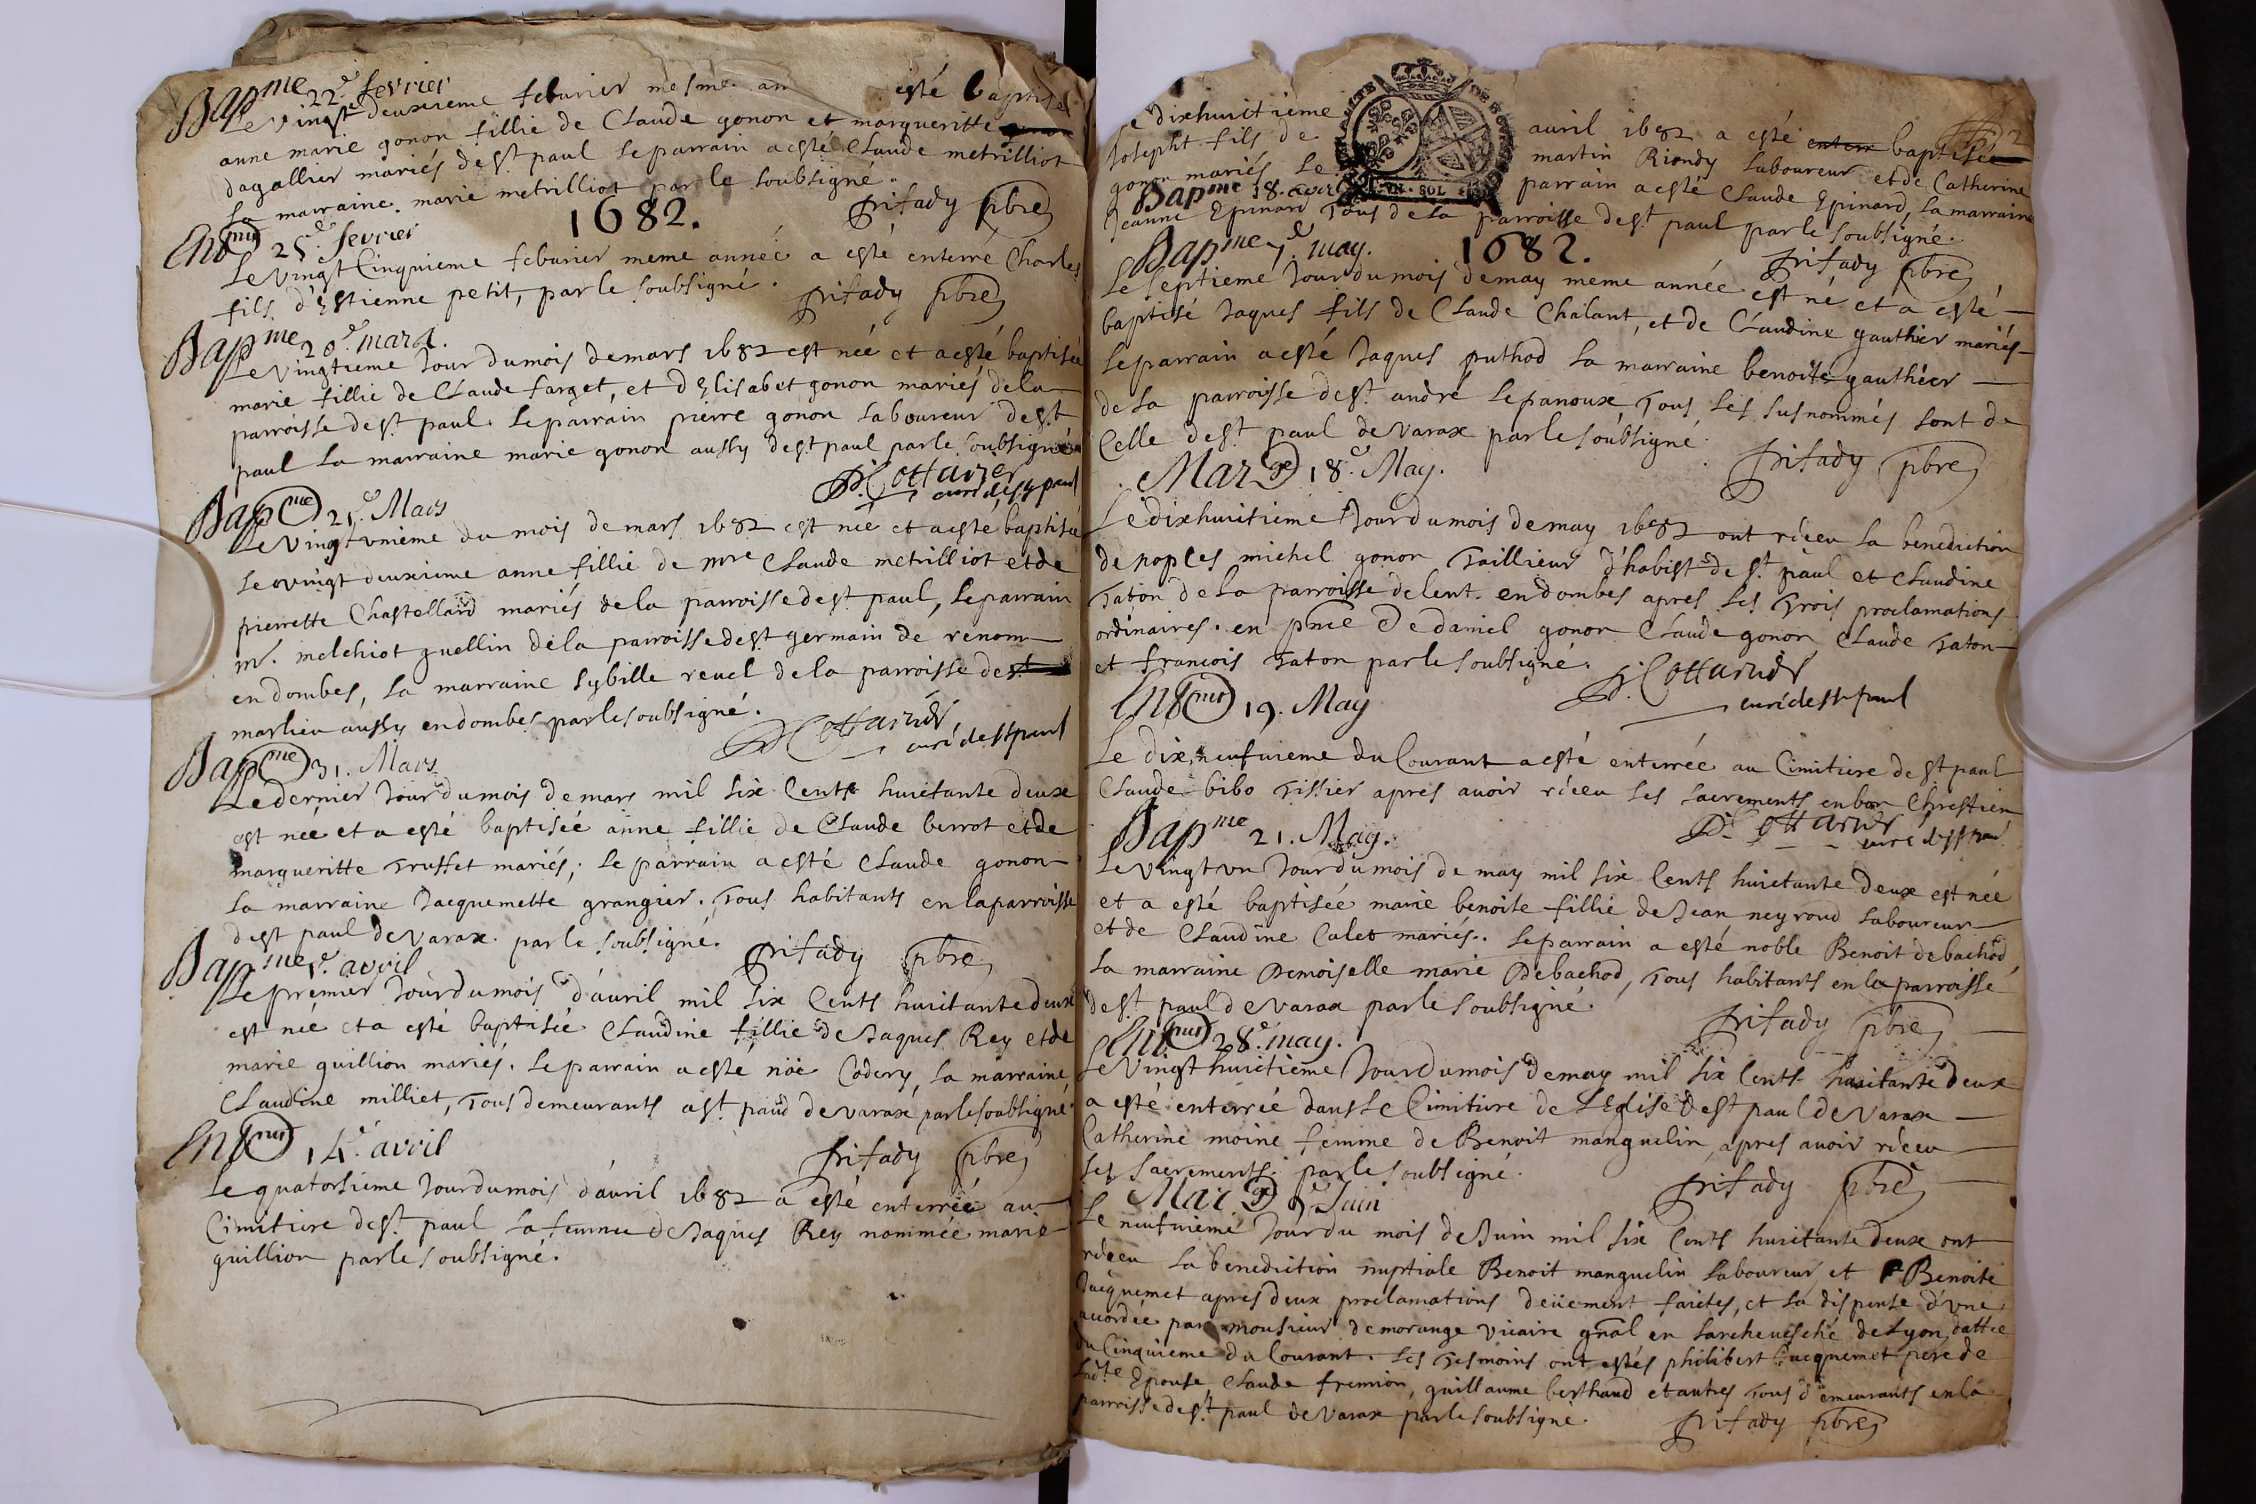 Bapme 22e fevrier
Le vingt deuxieme feburier mesme an esté baptisée
anne marie gonon fillie de Claude gonon et margueritte
dagallier mariés de st paul Le parrain a esté Claude metrilliot
La marraine marie metrilliot par le soubsigné.
1682. Trifady pbre
Entmnt 25e fevrier
Le vingt Cinquieme feburier meme année a esté enterré Charles
fils d'Estienne petit, par le soubsigné. Trifady pbre
Bapme 20e mars.
Le vingtieme Jour du mois de mars 1682 est née et a esté baptisée
marie fillie de Claude farget, et d'Elisabet gonon mariés de la
parroisse de st paul. Le parrain pierre gonon laboureur de st
paul La marraine marie gonon aussy de st paul par le soubsigné
Cottarier
curé de st paul
Bapme 21e Mars
Le vingt vnieme du mois de mars 1682 est née et a esté baptisée
Le vingt deuxieme anne fillie de mre Claude metrilliot et de
pierrette Chastellard mariés de la parroisse de st paul, Le parrain
mr. melchiot guellin de la parroisse de st germain de renom
en dombes, La marraine sybille revel de la parroisse de
marlieu aussy en dombes par le soubsigné.
Cottarier
curé de st paul
Bapme 31. Mars
Le dernier Jour du mois de mars mil six Cents huictante deux
est née et a esté baptisée anne fillie de Claude berrot et de
margueritte Truffet mariés; Le parrain a esté Claude gonon
La marraine Jacquemette grangier. Tous habitants en la parroisse
de st paul de varax par le soubsigné. Trifady pbre
Bapme 1e. avril
Le premier Jour du mois d'auril mil six Cents huictante deux
est née et a esté baptisée Claudine fillie de Jaques Rey et de
marie guillion mariés. Le parrain a esté noë Codery, La marraine
Claudine milliet, Tous demeurants a st. paul de varax par le soubsigné.
Entmnt 14e. avril Trifady pbre
Le quatorsieme Jour du mois d'auril 1682 a esté enterrée au
Cimitiere de st. paul La femme de Jaques Rey nommée marie
guillion par le soubsigné.
2
Le dixhuitieme auril 1682 a esté enterr baptisée
Josepht fils de martin Riondy Laboureur et de Catherine
gonon mariés Le parrain a esté Claude Epinard, La marraine
Bapme 18. avril
VN SOL
Jeanne Epinard Tous de La parroisse de st. paul par le soubsigné.
Bapme 7e. may. 1682. Trifady pbre
Le septieme Jour du mois de may meme année est né et a esté
baptisé Jaques fils de Claude Chalant, et de Claudine gauthier mariés
Le parrain a esté Jaques puthod La marraine benoite gauthier
de La parroisse de st. andré Le panoux Tous Les susnommés sont de
Celle de st. paul de varax par le soubsigné. Trifady pbre
Marge 18e. May.
Le dixhuitieme Jour du mois de may 1682 ont receu La benediction
de nopces michel gonon Taillieur d'habist de st. paul et Claudine
Taton de La parroisse de lent. en dombes apres Les Trois proclamations
ordinaires. en pnce de daniel gonon Claude gonon Claude Taton
et francois Taton par le soubsigné. Cottarier
curé de st paul
Entmnt 19. May
Le dix neufuieme du Courant a esté enterrée au Cimitiere de st paul
Claude bibo Tissier aprés auoir receu Les sacrements en bon Chrestien
Cottarier
curé de st paul
Bapme 21. May.
Le vingt vn Jour du mois de may mil six Cents huictante deux est née
et a esté baptisée marie benoite fillie de Jean neyroud Laboureur
et de Claudine Calet mariés. Le parrain a esté noble Benoit de bachod
La marraine Demoiselle marie Debachod, Tous habitants en la parroisse
de st. paul de varax par le soubsigné. Trifady pbre
Entmnt 28e. may.
Le vingt huictieme Jour du mois de may mil six Cents huictante deux
a esté enterrée dans Le Cimitiere de L'Eglise de st paul de varax
Catherine moine femme de Benoit manguelin, apres auoir receu
Les sacrements par le soubsigné. Trifady pbre
Marge 9e Juin
Le neufuieme Jour du mois de Juin mil six Cents huictante deux ont
receu La benediction nuptiale Benoit manguelin Laboureur et Benoite
Jacquemet apres deux proclamations deüement faictes, et La dispense d'vne
accordée par monsieur demorange vicaire gnal en Larcheuesché de Lyon, dattée
du Cinquieme du Courant. Les Tesmoins ont estés philibert Jacquemet pere de
Ladte Epouse Claude fremion, guillaume berthaud et autres Tous demeurants en la
parroisse de st. paul de varax par le soubsigné. Trifady pbre